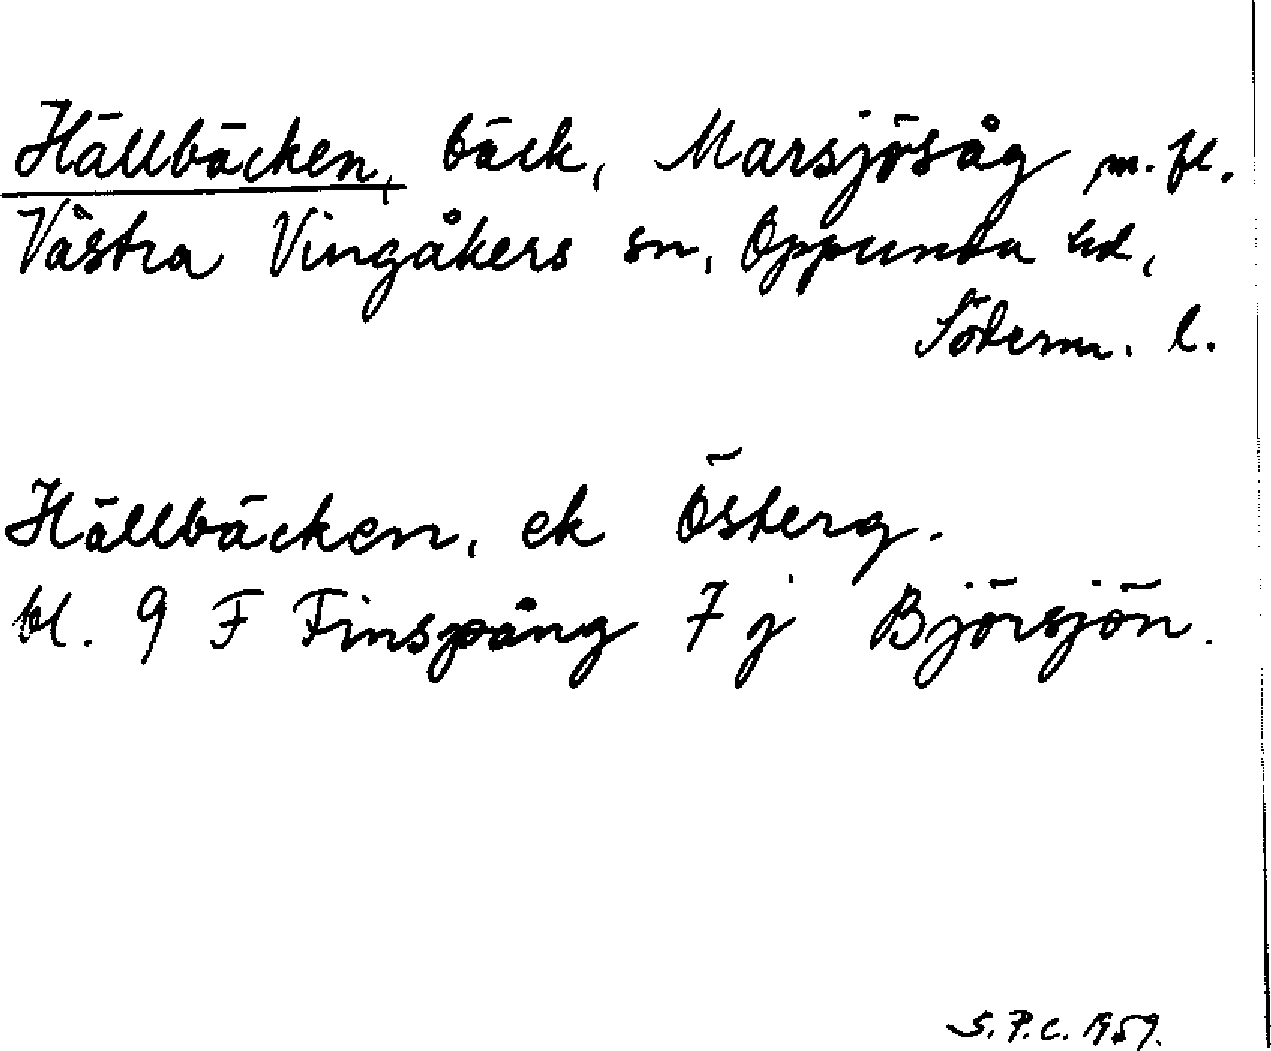 Hällbäcken, bäck, Marsjösåg m. fl.
Västra Vingåkers sn, Oppunda hd,
Söderm. l.
Hällbäcken, ek Österg.
bl. 9 F Finspång 7 j Björsjön.
S.P.C. 1959.